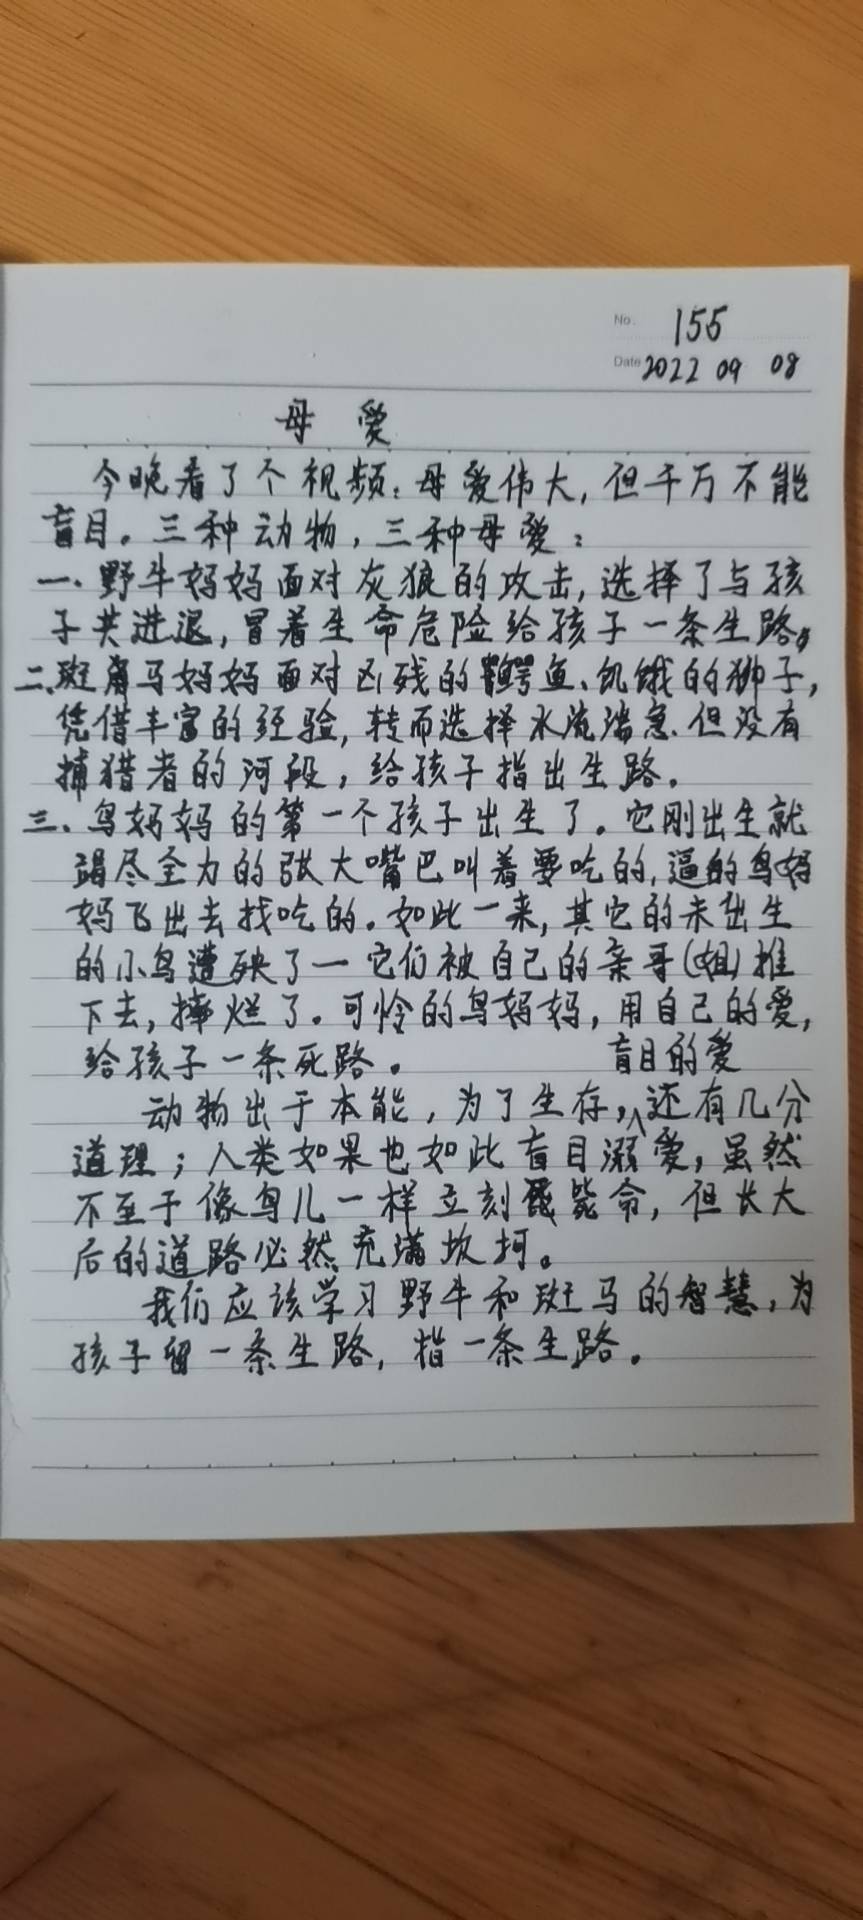 No. 155
Date 2022 09 08
母 爱
今晚看了个视频：母爱伟大，但千万不能
盲目。三种动物，三种母爱：
一、野牛妈妈面对灰狼的攻击，选择了与孩
子共进退，冒着生命危险给孩子一条生路。
二、斑马妈妈面对凶残的鳄鱼、饥饿的狮子，
凭借丰富的经验，转而选择水流湍急、但没有
捕猎者的河段，给孩子指出生路。
三、鸟妈妈的第一个孩子出生了。它刚出生就
竭尽全力的张大嘴巴叫着要吃的，逼的鸟妈
妈飞出去找吃的。如此一来，其它的未出生
的小鸟遭殃了—它们被自己的亲哥(姐)推
下去，摔烂了。可怜的鸟妈妈，用自己的爱，
给孩子一条死路。
盲目的爱
动物出于本能，为了生存，还有几分
道理；人类如果也如此盲目溺爱，虽然
不至于像鸟儿一样立刻毙命，但长大
后的道路必然充满坎坷。
我们应该学习野牛和斑马的智慧，为
孩子留一条生路，指一条生路。